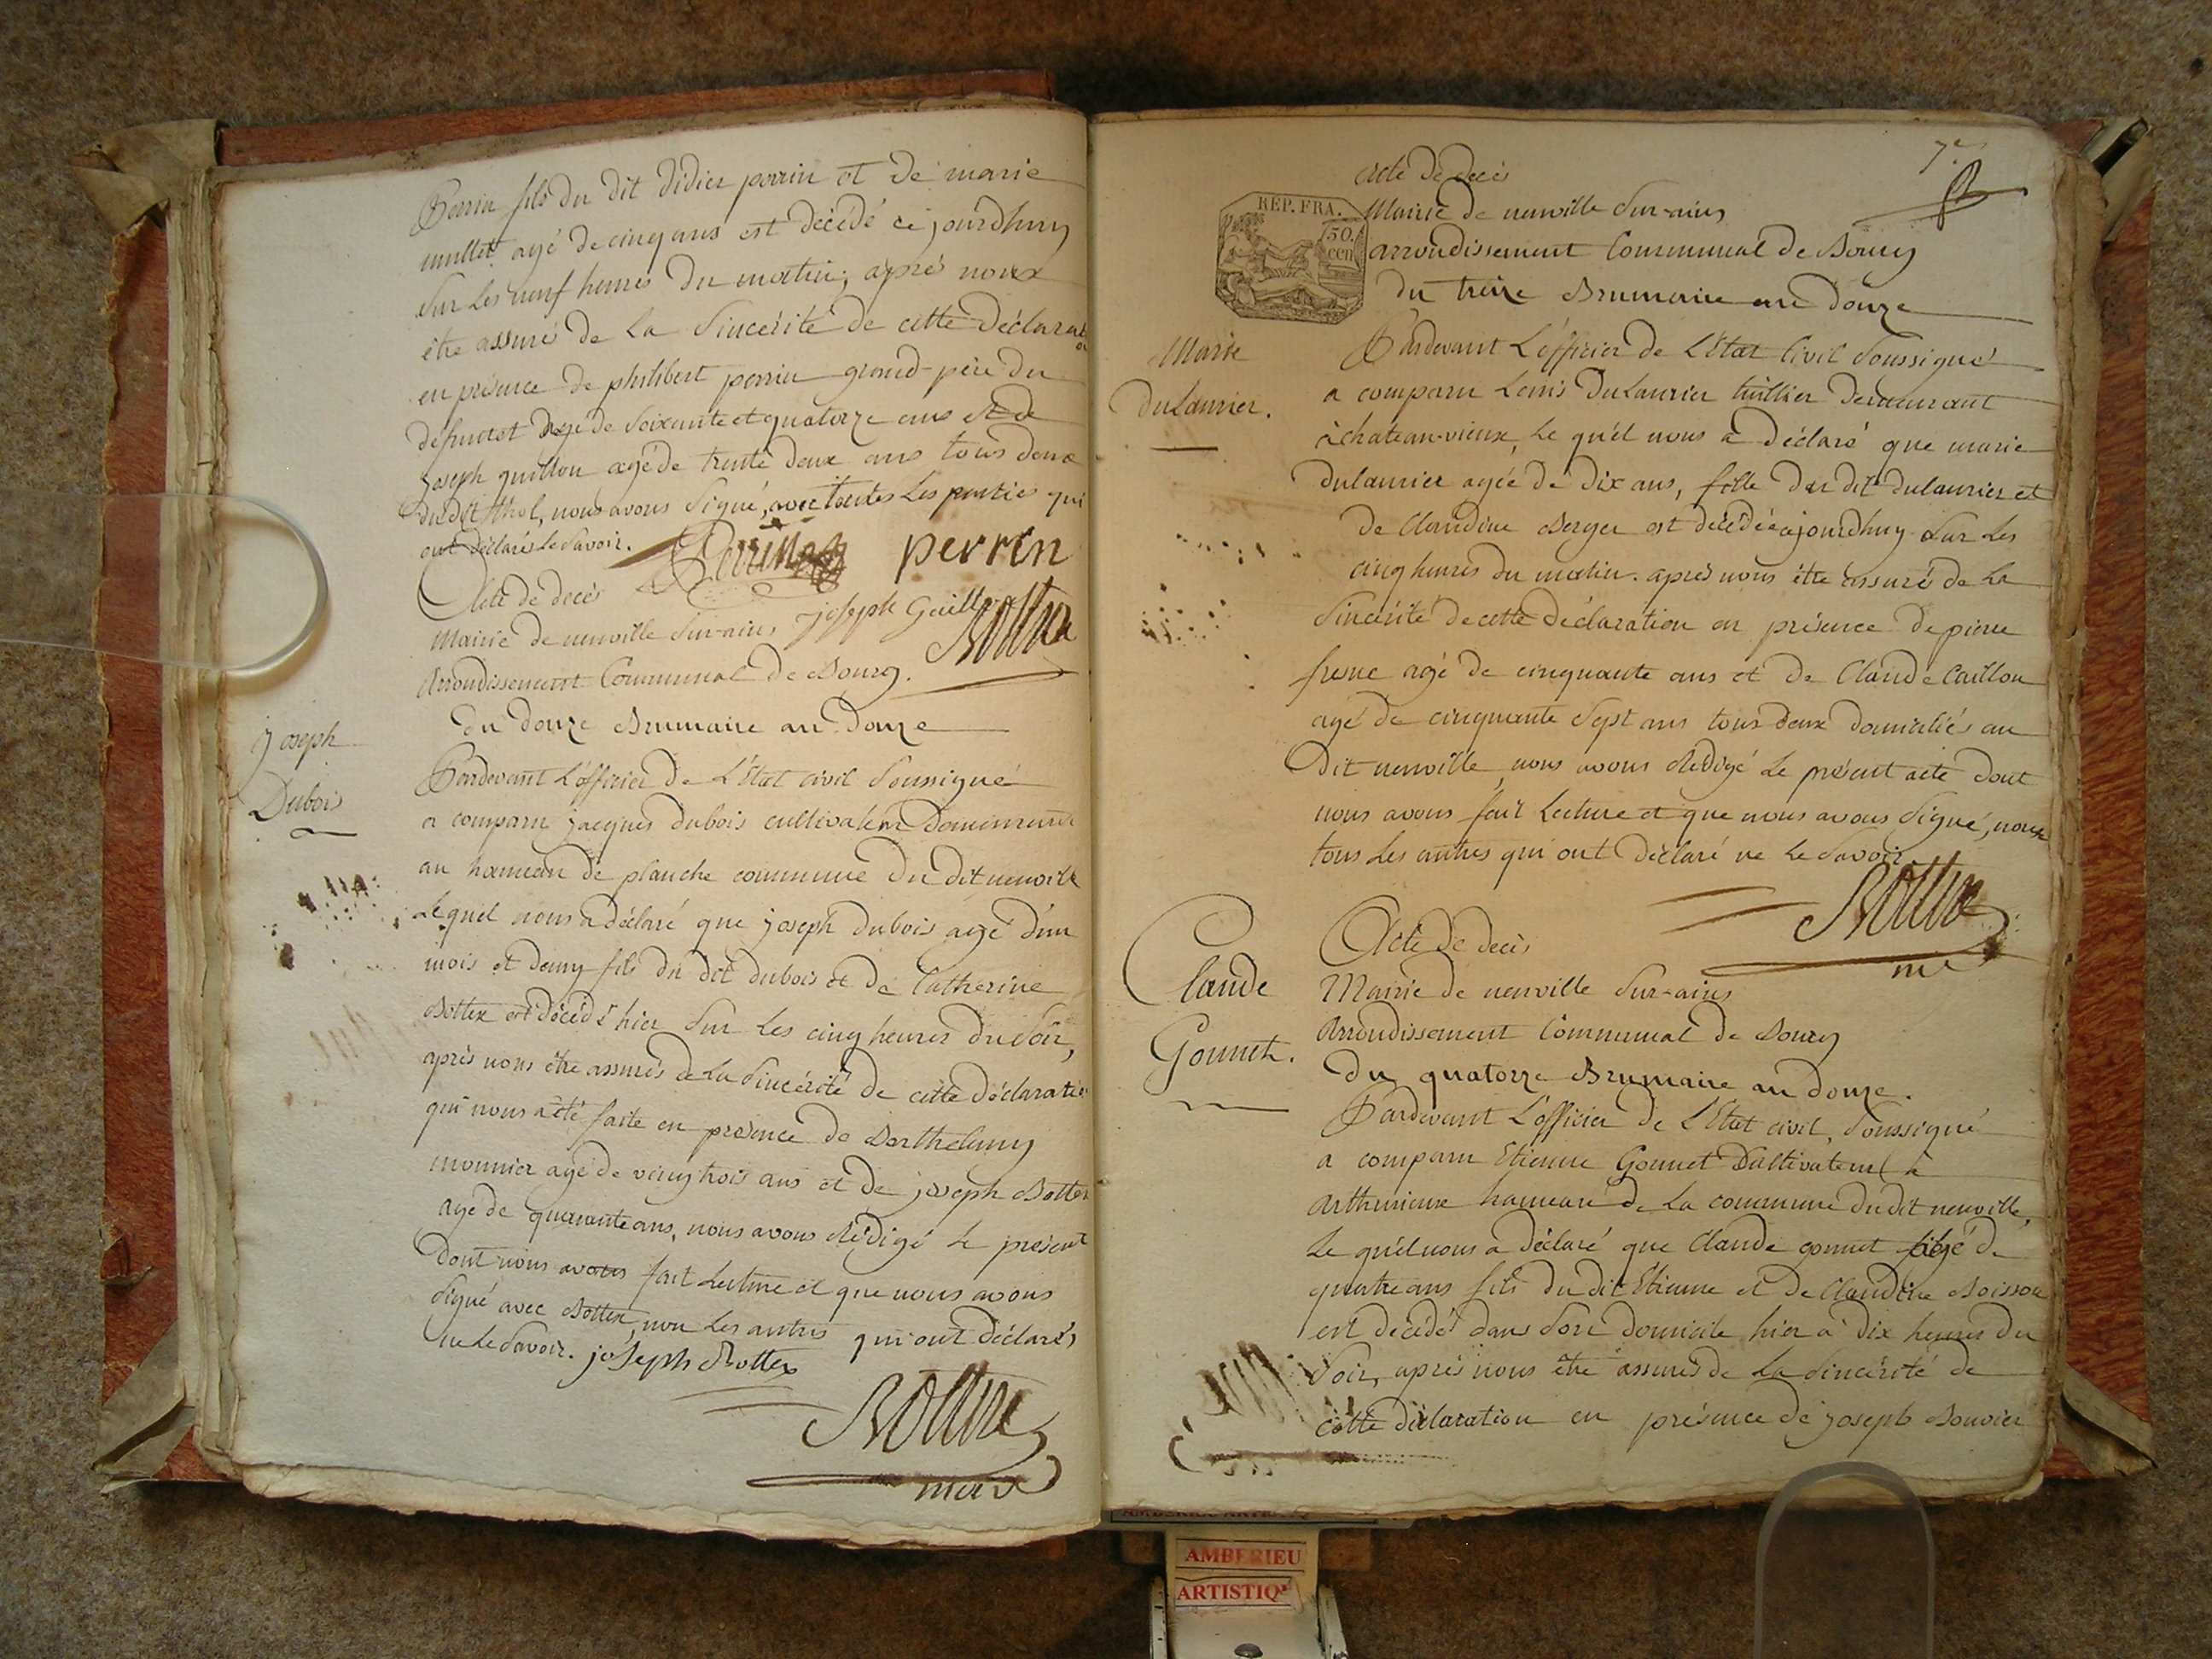 Perrin fils du dit didier perrin et de marie
mullet agé de cinq ans est décédé ce jourdhuy
Sur Les neuf heures du matin; après nous
être assuré de La Sincérité de cette Déclarat
on
en présence de philibert perrin grand-père du
défunct agé de Soixante et quatorze ans et de
joseph guillon agé de trente deux ans tous deux
du dit thol, nous avons Signé, avec toutes Les parties qui
ont déclarés le Savoir.
Perrin perrin
joseph Guillon
Acte de decès
Mairie de neuville Sur-ains
Arrondissement Communal de Bourg.
du douze Brumaire an douze
Joseph
Dubois
Pardevant L'officier de L'Etat civil Soussigné
a comparu jacques dubois cultivateur Demeurant
au hameau de planche commune du dit neuville
Lequel nous a déclaré que joseph dubois agé d'un
mois et demy fils du dit dubois et de Catherine
Bottex est décédé hier Sur Les cinq heures du Soir,
après nous être assurés de La Sincérité de cette déclaration
qui nous a été faite en présence de Barthelemy
monnier agé de vingt trois ans et de joseph Bottex
agé de quarante ans, nous avons Rédigé Le present
Dont nous avons fait Lecture et que nous avons
Signé avec Bottex, non Les autres qui ont déclarés
ne Le Savoir. joseph Bottex
7e
acte de decès
REP. FRA.
50.
cen
Mairie de neuville Sur-ains
arrondissement Communal de Bourg
du treize Brumaire an douze
Marie
DuLaurier.
Pardevant L'éfficier de L'Etat Civil Soussigné
a comparu Louis DuLaurier tuillier Demeurant
à chateau-vieux, Le quel nous a déclaré que marie
dulaurier agée de Dix ans, fille du dit dulaurier et
de Claudine Berger est décédée cejourdhuy Sur Les
cinq heures du matin. après nous être assurés de La
Sincérité de cette déclaration en présence de pierre
fresne agé de cinquante ans et de Claude Caillon
agé de cinquante Sept ans tous deux domiciliés au
dit neuville, nous avons Rédigé Le présent acte dont
nous avons fait Lecture et que nous avons Signé, non
tous Les autres qui ont déclaré ne Le Savoir
Claude
Gonnet.
Acte de decès
Mairie de neuville Sur-ains
Arrondissement Communal de Bourg
du quatorze Brumaire an douze.
Pardevant L'officier de L'Etat civil, Soussigné
a comparu Etienne Gonnet Cultivateur à
arthurieux hameau de La commune du dit neuville,
Le quel nous a déclaré que Claude gonnet agé de
quatre ans fils du dit Etienne et de Claudine Boisson
est décédé dans Son Domicile hier à dix heures du
Soir, après nous être assurés de La Sincérité de
cette déclaration en présence de joseph Bouvier
AMBERIEU
ARTISTIQ